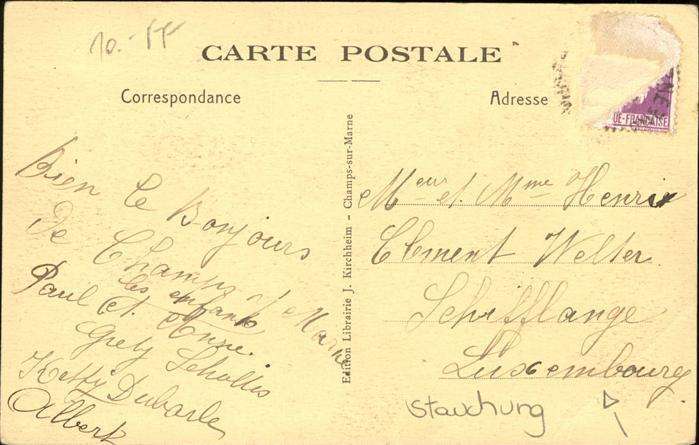 10.- Fr
CARTE POSTALE
Correspondance
Adresse
DE-FRANÇAISE
Bien le Bonjours
De Champs s/ Marne
les enfants
Paul et Anni
Grety Schultis
Ketty Dubarle
Albert
Edition Librairie J. Kirchheim - Champs-sur-Marne
Meur et. Mme Henri
Clement Welter
Schifflange
Luxembourg
Stauchung